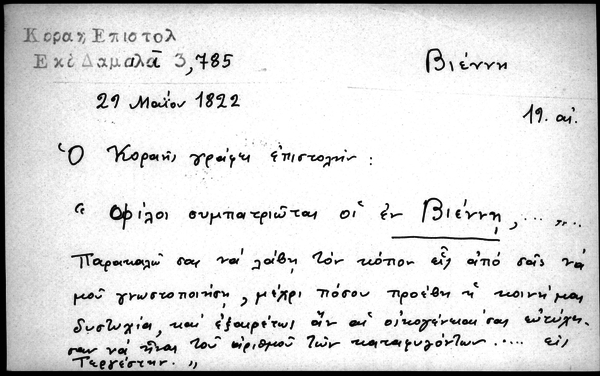 Κοραη Επιστολ
Εκδ Δαμαλᾶ 3,785
Βιέννη
29 Μαΐου 1822
19. αἰ.
Ὁ Κοραῆς γράφει ἐπιστολήν :
" Ὦ φίλοι συμπατριῶται οἱ ἐν Βιέννῃ, .... "..
Παρακαλῶ σας νά λάβῃ τόν κόπον εἷς ἀπό σᾶς νά
μοῦ γνωστοποιήσῃ, μέχρι πόσου προέβη ἡ κοινή μας
δυστυχία, καί ἐξαιρέτως ἄν αἱ οἰκογένειαί σας εὐτύχη-
σαν νά ἦναι τοῦ ἀριθμοῦ τῶν καταφυγόντων ..... εἰς
Τεργέστην. "